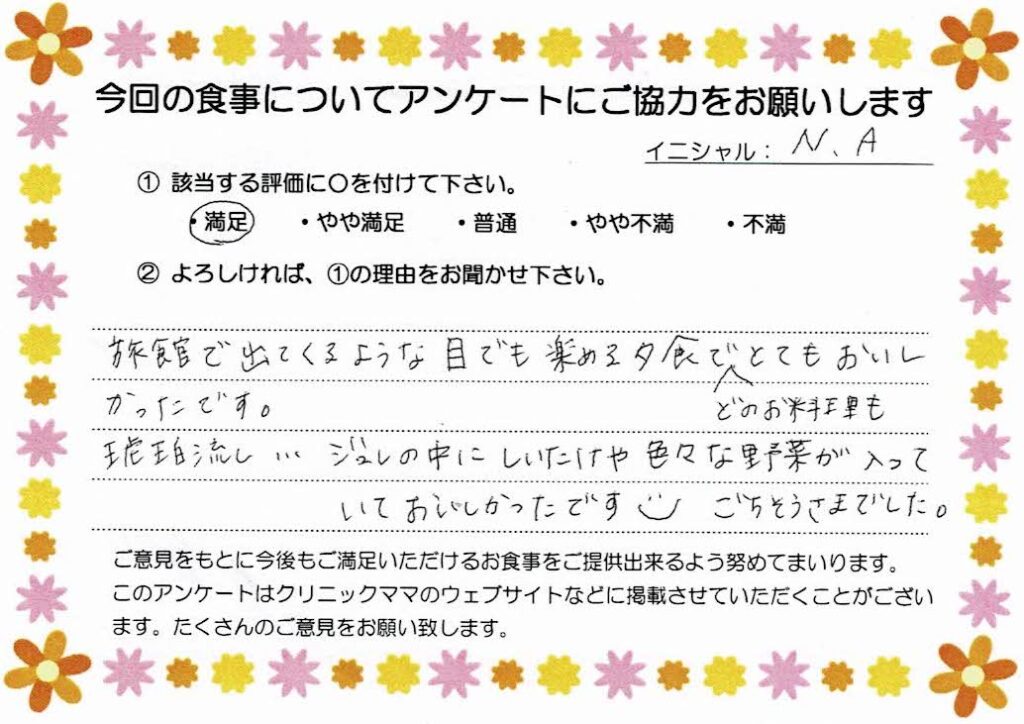 今回の食事についてアンケートにご協力をお願いします
イニシャル： N、A
① 該当する評価に〇を付けて下さい。
・満足 ・やや満足 ・普通 ・やや不満 ・不満
② よろしければ、①の理由をお聞かせ下さい。
旅館で出てくるような目でも楽める夕食でとてもおいし
かったです。 どのお料理も
琥珀流し… ジュレの中にしいたけや色々な野菜が入って
いておいしかったです ごちそうさまでした。
ご意見をもとに今後もご満足いただけるお食事をご提供出来るよう努めてまいります。
このアンケートはクリニックママのウェブサイトなどに掲載させていただくことがござい
ます。たくさんのご意見をお願い致します。